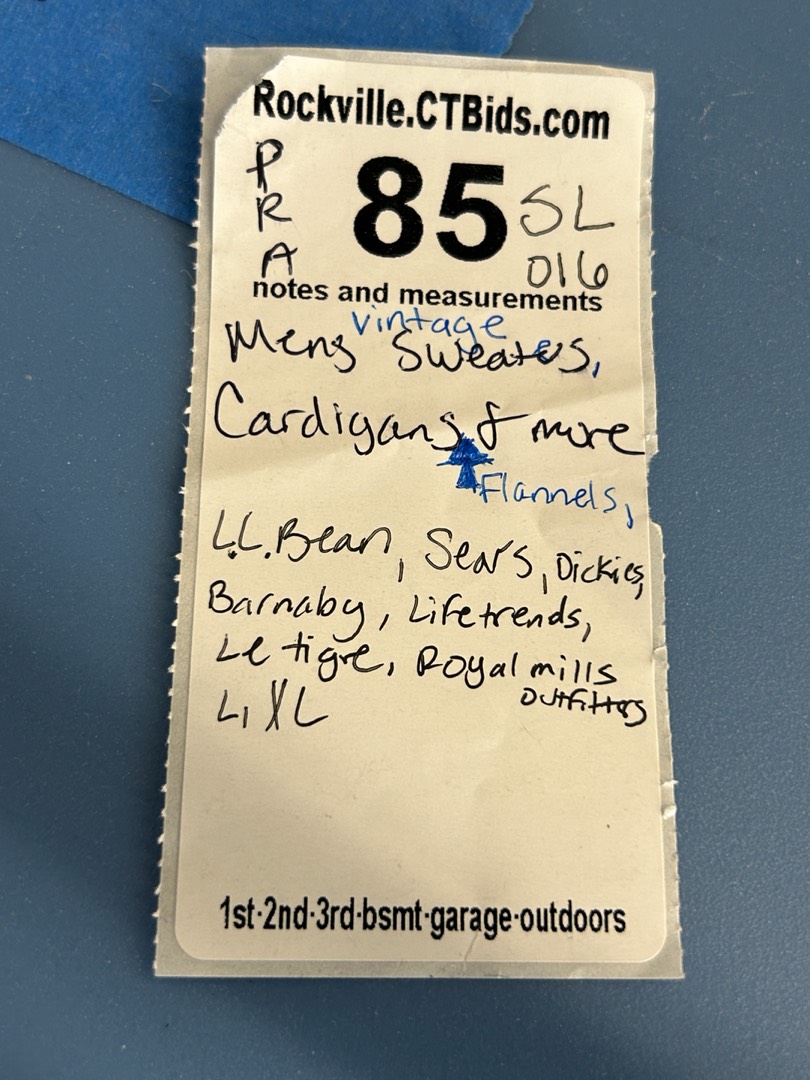 Rockville.CTBids.com
P
R
A
85
SL
016
notes and measurements
vintage
Mens Sweaters,
Cardigans & more
Flannels,
L.L.Bean, Sears, Dickies,
Barnaby, Lifetrends,
Le tigre, Royal mills
outfitters
L, XL
1st·2nd·3rd·bsmt·garage·outdoors